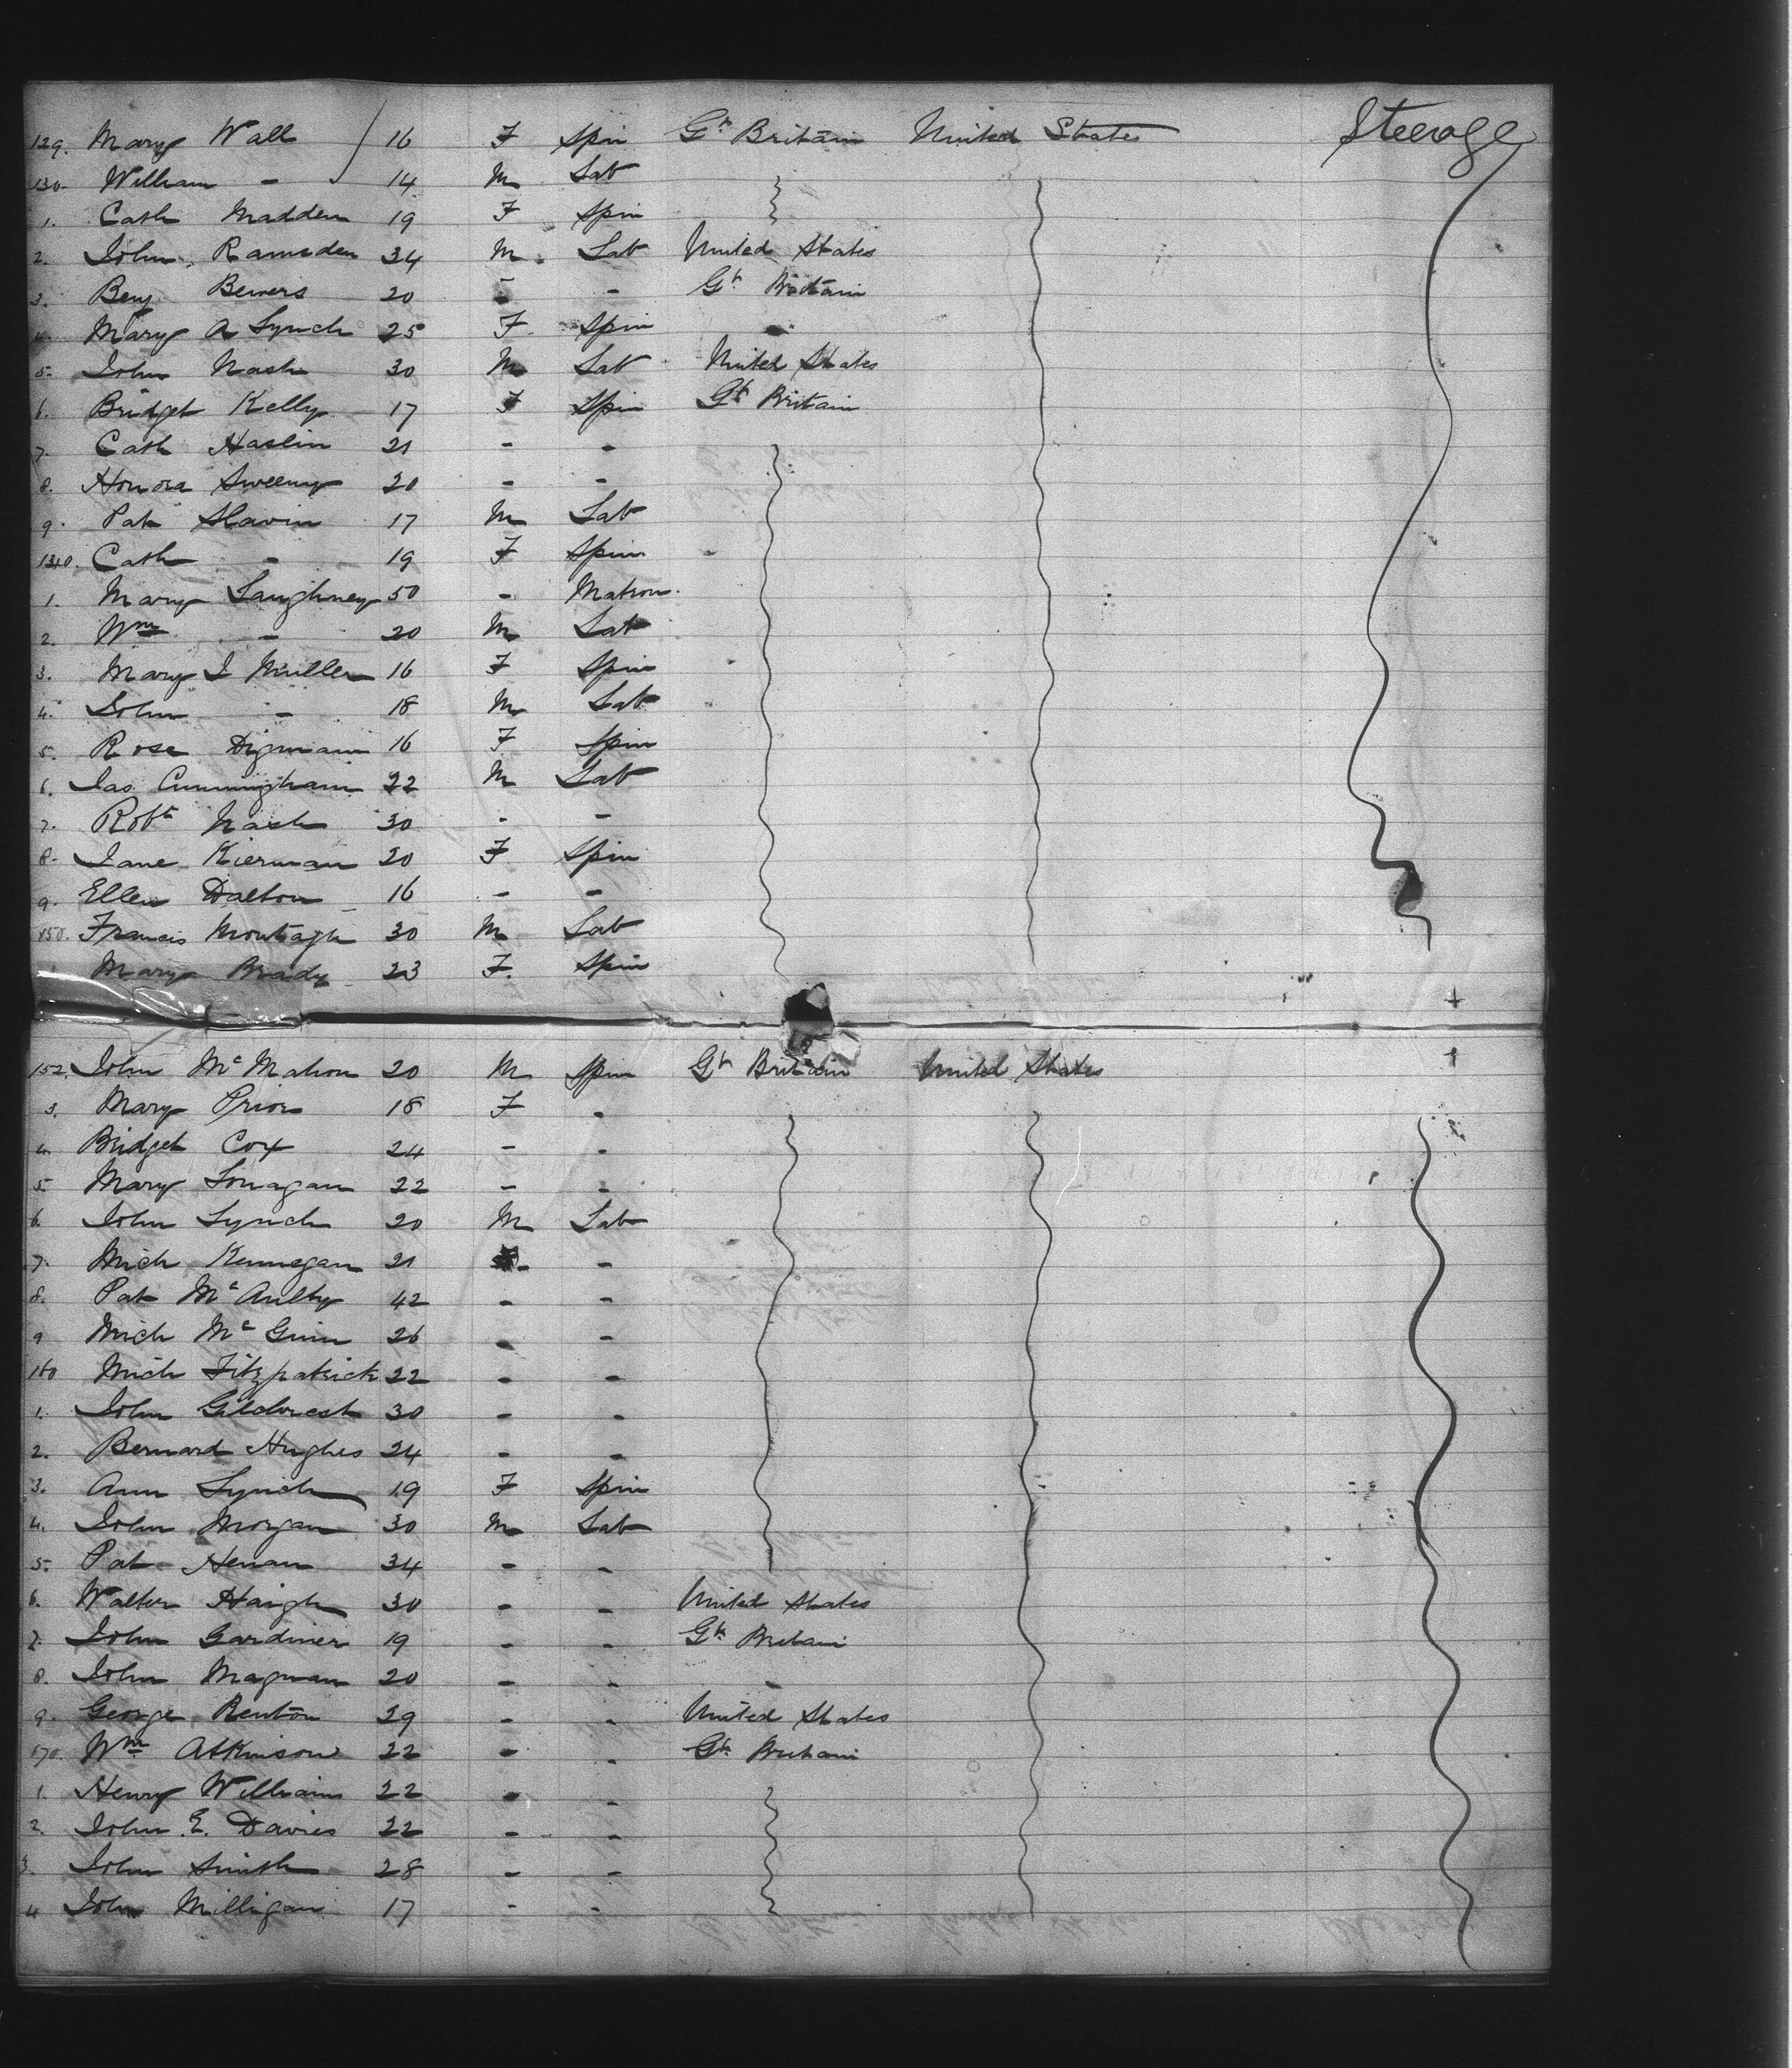 129. Mary Wall 16 F Spin Gt Britain United States Steerage
130. William - 14 M Lab
1. Cath Madden 19 F Spin
2. John Ramsden 34 M. Lab United States
3. Benj Bewers 20 - - Gt Britain
4. Mary A Lynch 25 F Spin -
5. John Nash 30 M Lab United States
6. Bridget Kelly 17 F Spin Gt Britain
7. Cath Haslin 21 - -
8. Honora Sweeny 20 - -
9. Pat Slavin 17 M Lab
140. Cath - 19 F Spin
1. Mary Laughney 50 - Matron
2. Wm - 20 M Lab
3. Mary J Mullen 16 F Spin
4. John - 18 M Lab
5. Rose 16 F Spin
6. Jas Cunningham 22 M Lab
7. Robt Nash 30 - -
8. Jane Kiernan 20 F Spin
9. Ellen Dalton 16 - -
150. Francis Montagh 30 M Lab
Mary Brady 23 F Spin
152. John McMahon 20 M Spin Gt Britain United States
3. Mary Prior 18 F -
4. Bridget Cox 24 - -
5. Mary Lonagan 22 - -
6. John Lynch 20 M Lab
7. Mich Kennegan 21 -
8. Pat McAulty 42 - -
9 Mich McGuin 26 - -
160 Mich Fitzpatrick 22 - -
1. John Gilchrest 30 - -
2. Bernard Hughes 24 - -
3. Ann Lynch 19 F Spin
4. John Morgan 30 M Lab
5. Pat Henan 34 - -
6. Walter Haigh 30 - - United States
7. John Gardiner 19 - - Gt Britain
8. John Magnan 20 - - -
9. George Renton 29 - - United States
170. Wm Atkinson 22 - - Gt Britain
1. Henry Williams 22 - -
2. John E. Davies 22 - -
3. John Smith 28 - -
4 John Milligan 17 - -